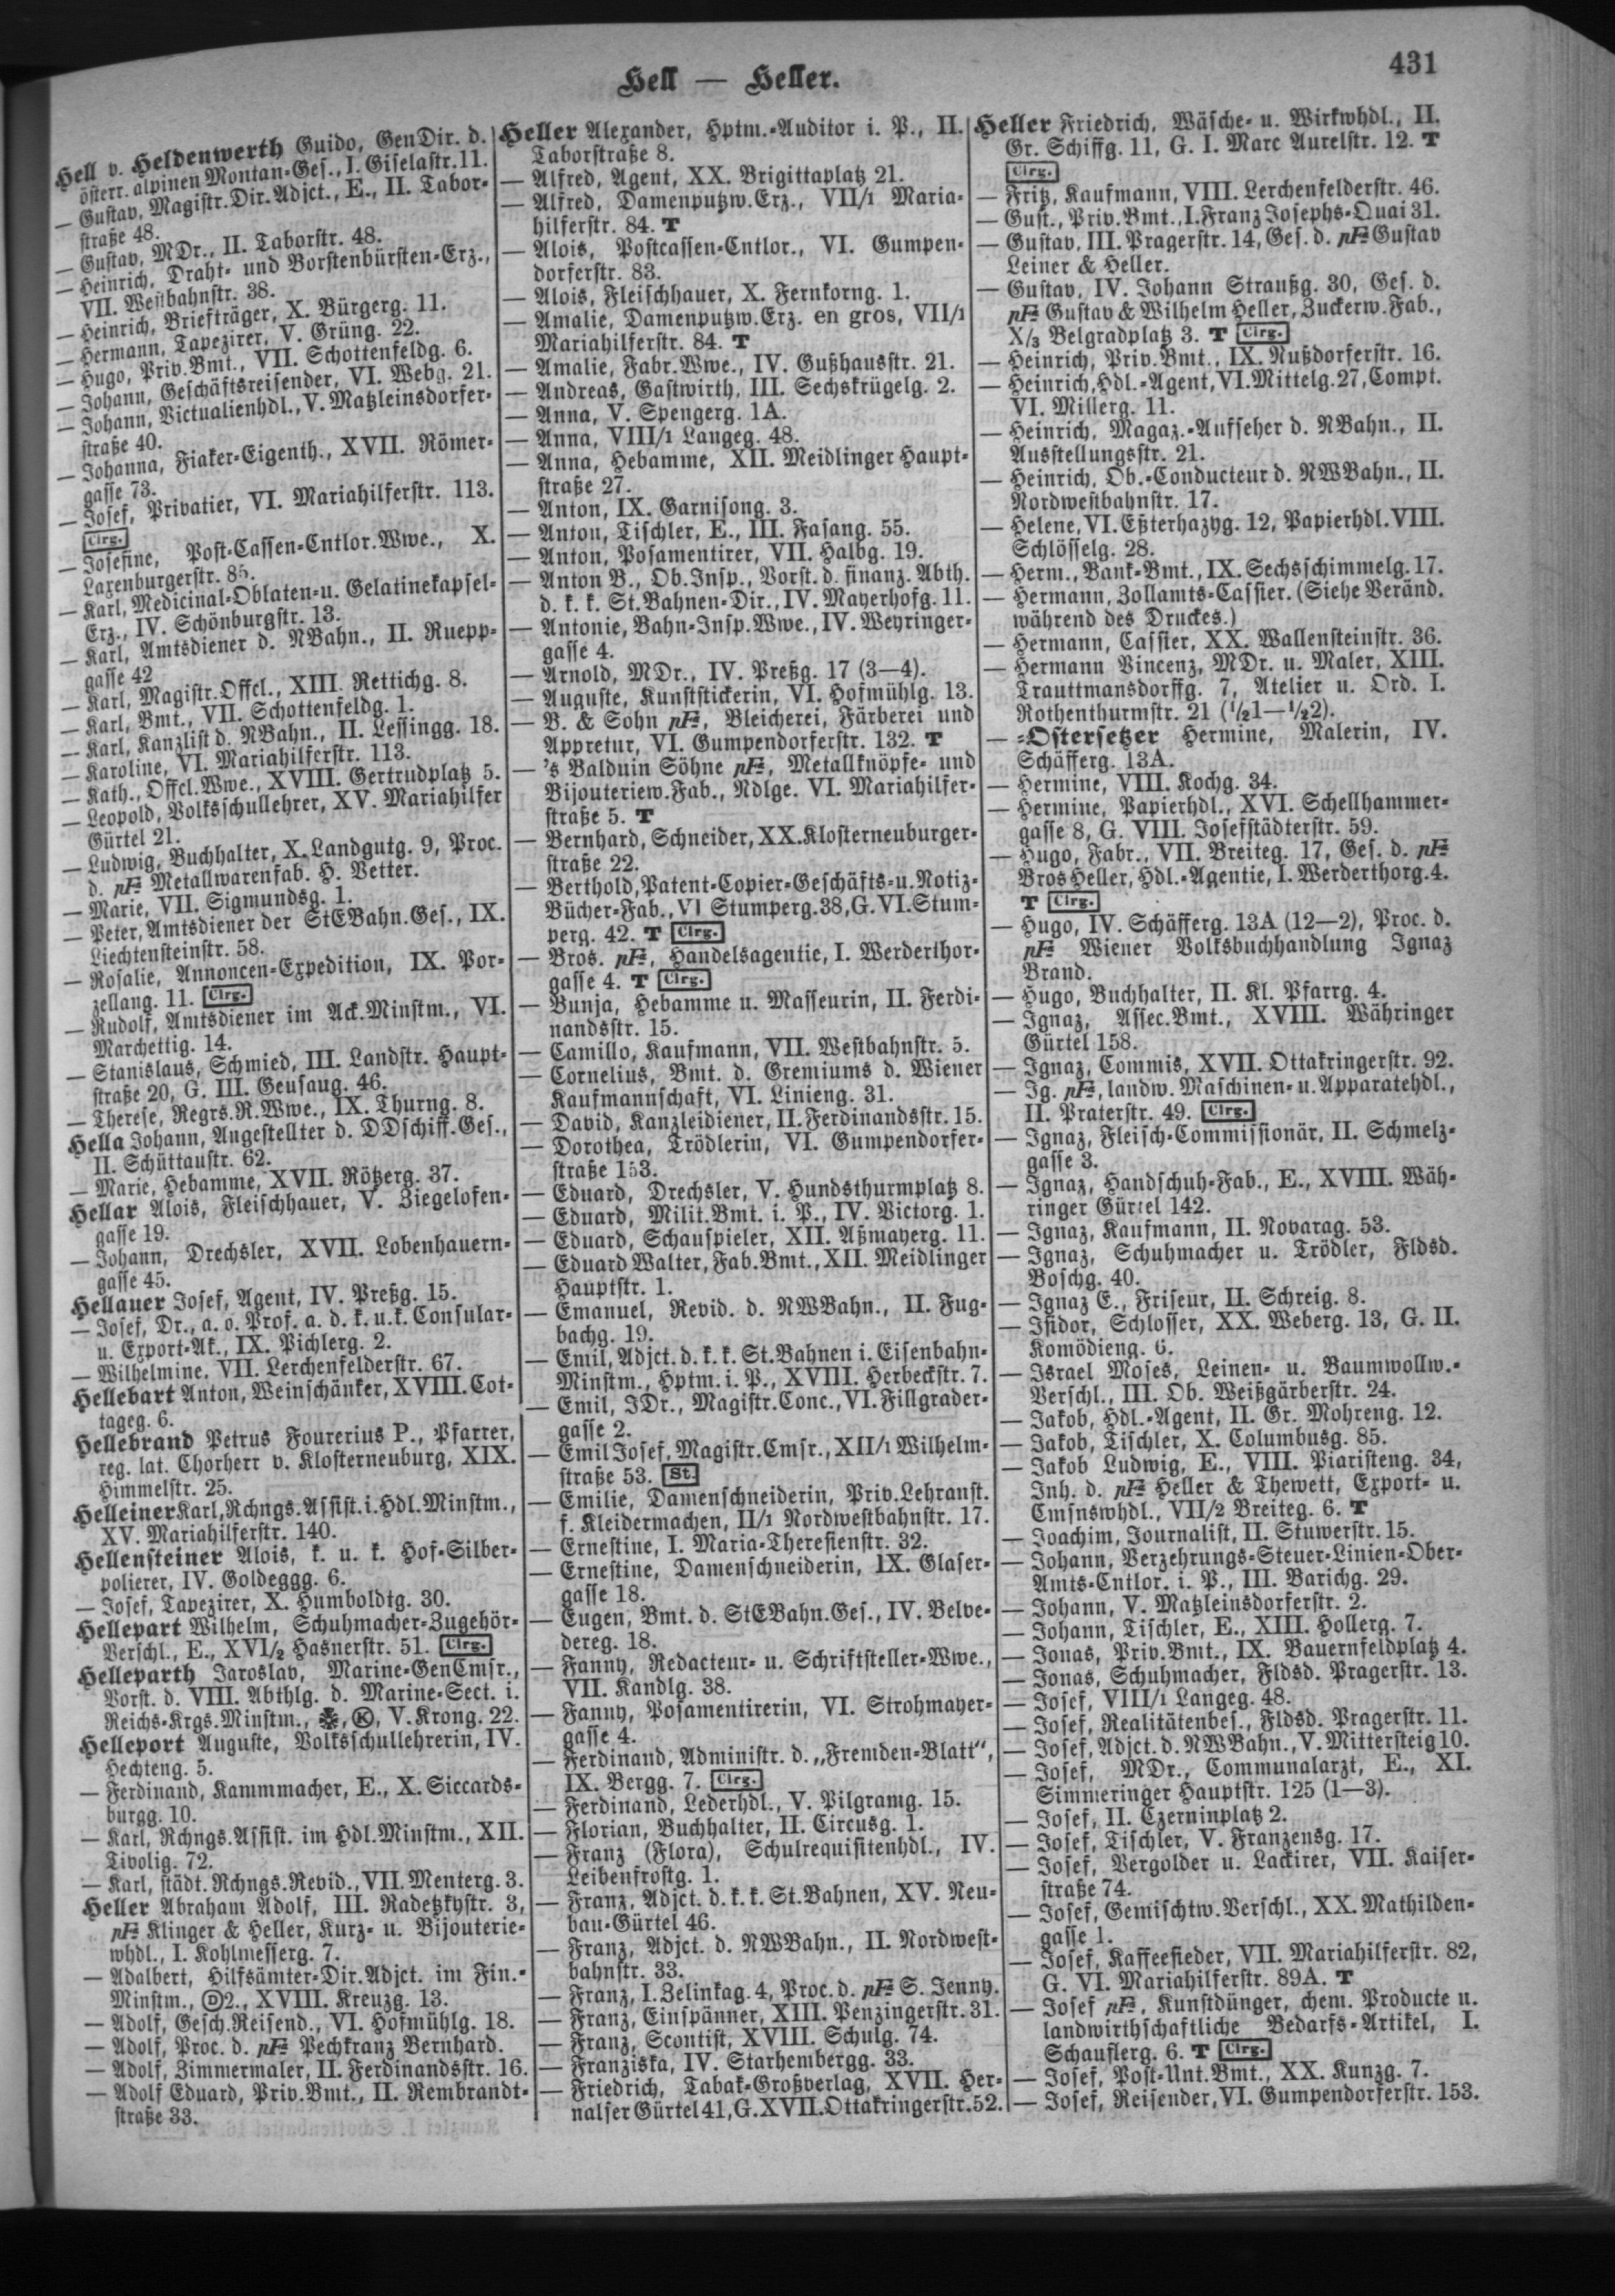 431
Hell — Heller.
Hell v. Heldenwerth Guido, GenDir. d.
österr. alpinen Montan-Ges., I. Giselastr. 11.
— Gustav, Magistr.Dir.Adjct., E., II. Tabor-
straße 48.
— Gustav, MDr., II. Taborstr. 48.
— Heinrich, Draht- und Borstenbürsten-Erz.,
VII. Westbahnstr. 38.
— Heinrich, Briefträger, X. Bürgerg. 11.
— Hermann, Tapezirer, V. Grüng. 22.
— Hugo, Priv.Bmt., VII. Schottenfeldg. 6.
— Johann, Geschäftsreisender, VI. Webg. 21.
— Johann, Victualienhdl., V. Matzleinsdorfer-
straße 40.
— Johanna, Fiaker-Eigenth., XVII. Römer-
gasse 73.
— Josef, Privatier, VI. Mariahilferstr. 113.
Clrg.
— Josefine, Post-Cassen-Cntlor.Wwe., X.
Laxenburgerstr. 85.
— Karl, Medicinal-Oblaten- u. Gelatinekapsel-
Erz., IV. Schönburgstr. 13.
— Karl, Amtsdiener d. NBahn., II. Ruepp-
gasse 42
— Karl, Magistr.Offcl., XIII. Rettichg. 8.
— Karl, Bmt., VII. Schottenfeldg. 1.
— Karl, Kanzlist d. NBahn., II. Lessingg. 18.
— Karoline, VI. Mariahilferstr. 113.
— Kath., Offcl.Wwe., XVIII. Gertrudplatz 5.
— Leopold, Volksschullehrer, XV. Mariahilfer
Gürtel 21.
— Ludwig, Buchhalter, X. Landgutg. 9, Proc.
d. pFa Metallwarenfab. H. Vetter.
— Marie, VII. Sigmundsg. 1.
— Peter, Amtsdiener der StEBahn.Ges., IX.
Liechtensteinstr. 58.
— Rosalie, Annoncen-Expedition, IX. Por-
zellang. 11. Clrg.
— Rudolf, Amtsdiener im Ack.Minstm., VI.
Marchettig. 14.
— Stanislaus, Schmied, III. Landstr. Haupt-
straße 20, G. III. Geusaug. 46.
— Therese, Regrs.R.Wwe., IX. Thurng. 8.
Hella Johann, Angestellter d. DDschiff.Ges.,
II. Schüttaustr. 62.
— Marie, Hebamme, XVII. Rötzerg. 37.
Hellar Alois, Fleischhauer, V. Ziegelofen-
gasse 19.
— Johann, Drechsler, XVII. Lobenhauern-
gasse 45.
Hellauer Josef, Agent, IV. Preßg. 15.
— Josef, Dr., a. o. Prof. a. d. k. u. k. Consular-
u. Export-Ak., IX. Pichlerg. 2.
— Wilhelmine, VII. Lerchenfelderstr. 67.
Hellebart Anton, Weinschänker, XVIII. Cot-
tageg. 6.
Hellebrand Petrus Fourerius P., Pfarrer,
reg. lat. Chorherr v. Klosterneuburg, XIX.
Himmelstr. 25.
Helleiner Karl, Rchngs.Assist. i. Hdl.Minstm.,
XV. Mariahilferstr. 140.
Hellensteiner Alois, k. u. k. Hof-Silber-
polierer, IV. Goldeggg. 6.
— Josef, Tapezirer, X. Humboldtg. 30.
Hellepart Wilhelm, Schuhmacher-Zugehör-
Verschl., E., XVI/2 Hasnerstr. 51. Clrg.
Helleparth Jaroslav, Marine-GenCmsr.,
Vorst. d. VIII. Abthlg. d. Marine-Sect. i.
Reichs-Krgs.Minstm., , Ⓚ, V. Krong. 22.
Helleport Auguste, Volksschullehrerin, IV.
Hechteng. 5.
— Ferdinand, Kammmacher, E., X. Siccards-
burgg. 10.
— Karl, Rchngs.Assist. im Hdl.Minstm., XII.
Tivolig. 72.
— Karl, städt. Rchngs.Revid., VII. Menterg. 3.
Heller Abraham Adolf, III. Radetzkystr. 3,
pFa Klinger & Heller, Kurz- u. Bijouterie-
whdl., I. Kohlmesserg. 7.
— Adalbert, Hilfsämter-Dir.Adjct. im Fin.-
Minstm., 2., XVIII. Kreuzg. 13.
— Adolf, Gesch.Reisend., VI. Hofmühlg. 18.
— Adolf, Proc. d. pFa Pechkranz Bernhard.
— Adolf, Zimmermaler, II. Ferdinandsstr. 16.
— Adolf Eduard, Priv.Bmt., II. Rembrandt-
straße 33.
Heller Alexander, Hptm.-Auditor i. P., II.
Taborstraße 8.
— Alfred, Agent, XX. Brigittaplatz 21.
— Alfred, Damenputzw.Erz., VII/1 Maria-
hilferstr. 84. T
— Alois, Postcassen-Cntlor., VI. Gumpen-
dorferstr. 83.
— Alois, Fleischhauer, X. Fernkorng. 1.
— Amalie, Damenputzw.Erz. en gros, VII/1
Mariahilferstr. 84. T
— Amalie, Fabr.Wwe., IV. Gußhausstr. 21.
— Andreas, Gastwirth, III. Sechskrügelg. 2.
— Anna, V. Spengerg. 1A.
— Anna, VIII/1 Langeg. 48.
— Anna, Hebamme, XII. Meidlinger Haupt-
straße 27.
— Anton, IX. Garnisong. 3.
— Anton, Tischler, E., III. Fasang. 55.
— Anton, Posamentirer, VII. Halbg. 19.
— Anton B., Ob.Insp., Vorst. d. finanz. Abth.
d. k. k. St.Bahnen-Dir., IV. Mayerhofg. 11.
— Antonie, Bahn-Insp.Wwe., IV. Weyringer-
gasse 4.
— Arnold, MDr., IV. Preßg. 17 (3—4).
— Auguste, Kunststickerin, VI. Hofmühlg. 13.
— B. & Sohn pFa, Bleicherei, Färberei und
Appretur, VI. Gumpendorferstr. 132. T
— 's Balduin Söhne pFa, Metallknöpfe- und
Bijouteriew.Fab., Ndlge. VI. Mariahilfer-
straße 5. T
— Bernhard, Schneider, XX. Klosterneuburger-
straße 22.
— Berthold, Patent-Copier-Geschäfts- u. Notiz-
Bücher-Fab., VI Stumperg. 38, G. VI. Stum-
perg. 42. T Clrg.
— Bros. pFa, Handelsagentie, I. Werderthor-
gasse 4. T Clrg.
— Bunja, Hebamme u. Masseurin, II. Ferdi-
nandsstr. 15.
— Camillo, Kaufmann, VII. Westbahnstr. 5.
— Cornelius, Bmt. d. Gremiums d. Wiener
Kaufmannschaft, VI. Linieng. 31.
— David, Kanzleidiener, II. Ferdinandsstr. 15.
— Dorothea, Trödlerin, VI. Gumpendorfer-
straße 153.
— Eduard, Drechsler, V. Hundsthurmplatz 8.
— Eduard, Milit.Bmt. i. P., IV. Victorg. 1.
— Eduard, Schauspieler, XII. Aßmayerg. 11.
— Eduard Walter, Fab.Bmt., XII. Meidlinger
Hauptstr. 1.
— Emanuel, Revid. d. NWBahn., II. Fug-
bachg. 19.
— Emil, Adjct. d. k. k. St.Bahnen i. Eisenbahn-
Minstm., Hptm. i. P., XVIII. Herbeckstr. 7.
— Emil, JDr., Magistr.Conc., VI. Fillgrader-
gasse 2.
— Emil Josef, Magistr.Cmsr., XII/1 Wilhelm-
straße 53. St.
— Emilie, Damenschneiderin, Priv.Lehranst.
f. Kleidermachen, II/1 Nordwestbahnstr. 17.
— Ernestine, I. Maria-Theresienstr. 32.
— Ernestine, Damenschneiderin, IX. Glaser-
gasse 18.
— Eugen, Bmt. d. StEBahn.Ges., IV. Belve-
dereg. 18.
— Fanny, Redacteur- u. Schriftsteller-Wwe.,
VII. Kandlg. 38.
— Fanny, Posamentirerin, VI. Strohmayer-
gasse 4.
— Ferdinand, Administr. d. „Fremden-Blatt“,
IX. Bergg. 7. Clrg.
— Ferdinand, Lederhdl., V. Pilgramg. 15.
— Florian, Buchhalter, II. Circusg. 1.
— Franz (Flora), Schulrequisitenhdl., IV.
Leibenfrostg. 1.
— Franz, Adjct. d. k. k. St.Bahnen, XV. Neu-
bau-Gürtel 46.
— Franz, Adjct. d. NWBahn., II. Nordwest-
bahnstr. 33.
— Franz, I. Zelinkag. 4, Proc. d. pFa S. Jenny.
— Franz, Einspänner, XIII. Penzingerstr. 31.
— Franz, Scontist, XVIII. Schulg. 74.
— Franziska, IV. Starhembergg. 33.
— Friedrich, Tabak-Großverlag, XVII. Her-
nalser Gürtel 41, G. XVII. Ottakringerstr. 52.
Heller Friedrich, Wäsche- u. Wirkwhdl., II.
Gr. Schiffg. 11, G. I. Marc Aurelstr. 12. T
Clrg.
— Fritz, Kaufmann, VIII. Lerchenfelderstr. 46.
— Gust., Priv.Bmt., I. Franz Josephs-Quai 31.
— Gustav, III. Pragerstr. 14, Ges. d. pFa Gustav
Leiner & Heller.
— Gustav, IV. Johann Straußg. 30, Ges. d.
pFa Gustav & Wilhelm Heller, Zuckerw.Fab.,
X/3 Belgradplatz 3. T Clrg.
— Heinrich, Priv.Bmt., IX. Nußdorferstr. 16.
— Heinrich, Hdl.-Agent, VI. Mittelg. 27, Compt.
VI. Millerg. 11.
— Heinrich, Magaz.-Aufseher d. NBahn., II.
Ausstellungsstr. 21.
— Heinrich, Ob.-Conducteur d. NWBahn., II.
Nordwestbahnstr. 17.
— Helene, VI. Eßterhazyg. 12, Papierhdl. VIII.
Schlösselg. 28.
— Herm., Bank-Bmt., IX. Sechsschimmelg. 17.
— Hermann, Zollamts-Cassier. (Siehe Veränd.
während des Druckes.)
— Hermann, Cassier, XX. Wallensteinstr. 36.
— Hermann Vincenz, MDr. u. Maler, XIII.
Trauttmansdorffg. 7, Atelier u. Ord. I.
Rothenthurmstr. 21 (1/2 1—1/2 2).
— -Ostersetzer Hermine, Malerin, IV.
Schäfferg. 13A.
— Hermine, VIII. Kochg. 34.
— Hermine, Papierhdl., XVI. Schellhammer-
gasse 8, G. VIII. Josefstädterstr. 59.
— Hugo, Fabr., VII. Breiteg. 17, Ges. d. pFa
Bros Heller, Hdl.-Agentie, I. Werderthorg. 4.
T Clrg.
— Hugo, IV. Schäfferg. 13A (12—2), Proc. d.
pFa Wiener Volksbuchhandlung Ignaz
Brand.
— Hugo, Buchhalter, II. Kl. Pfarrg. 4.
— Ignaz, Assec.Bmt., XVIII. Währinger
Gürtel 158.
— Ignaz, Commis, XVII. Ottakringerstr. 92.
— Ig. pFa, landw. Maschinen- u. Apparatehdl.,
II. Praterstr. 49. Clrg.
— Ignaz, Fleisch-Commissionär, II. Schmelz-
gasse 3.
— Ignaz, Handschuh-Fab., E., XVIII. Wäh-
ringer Gürtel 142.
— Ignaz, Kaufmann, II. Novarag. 53.
— Ignaz, Schuhmacher u. Trödler, Fldsd.
Boschg. 40.
— Ignaz E., Friseur, II. Schreig. 8.
— Isidor, Schlosser, XX. Weberg. 13, G. II.
Komödieng. 6.
— Israel Moses, Leinen- u. Baumwollw.-
Verschl., III. Ob. Weißgärberstr. 24.
— Jakob, Hdl.-Agent, II. Gr. Mohreng. 12.
— Jakob, Tischler, X. Columbusg. 85.
— Jakob Ludwig, E., VIII. Piaristeng. 34,
Inh. d. pFa Heller & Thewett, Export- u.
Cmsnswhdl., VII/2 Breiteg. 6. T
— Joachim, Journalist, II. Stuwerstr. 15.
— Johann, Verzehrungs-Steuer-Linien-Ober-
Amts-Cntlor. i. P., III. Barichg. 29.
— Johann, V. Matzleinsdorferstr. 2.
— Johann, Tischler, E., XIII. Hollerg. 7.
— Jonas, Priv.Bmt., IX. Bauernfeldplatz 4.
— Jonas, Schuhmacher, Fldsd. Pragerstr. 13.
— Josef, VIII/1 Langeg. 48.
— Josef, Realitätenbes., Fldsd. Pragerstr. 11.
— Josef, Adjct. d. NWBahn., V. Mittersteig 10.
— Josef, MDr., Communalarzt, E., XI.
Simmeringer Hauptstr. 125 (1—3).
— Josef, II. Czerninplatz 2.
— Josef, Tischler, V. Franzensg. 17.
— Josef, Vergolder u. Lackirer, VII. Kaiser-
straße 74.
— Josef, Gemischtw.Verschl., XX. Mathilden-
gasse 1.
— Josef, Kaffeesieder, VII. Mariahilferstr. 82,
G. VI. Mariahilferstr. 89A. T
— Josef pFa, Kunstdünger, chem. Producte u.
landwirthschaftliche Bedarfs-Artikel, I.
Schauflerg. 6. T Clrg.
— Josef, Post-Unt.Bmt., XX. Kunzg. 7.
— Josef, Reisender, VI. Gumpendorferstr. 153.